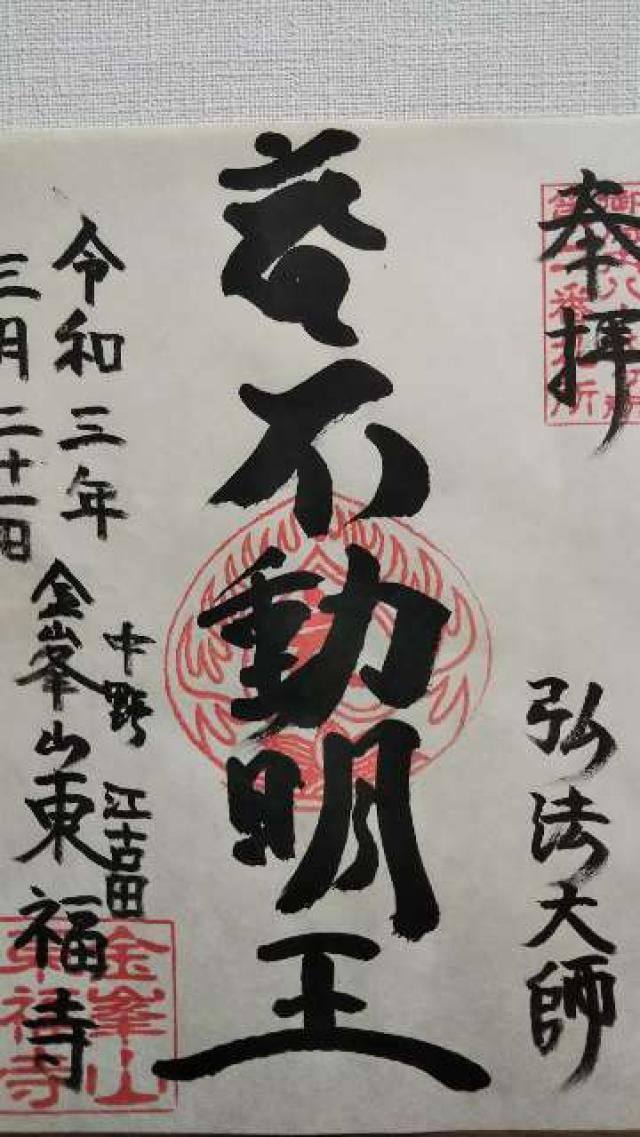 奉拝
弘法大師
不動明王
中野 江古田
金峯山東福寺
令和三年
三月二十一日
金峯山
東福寺